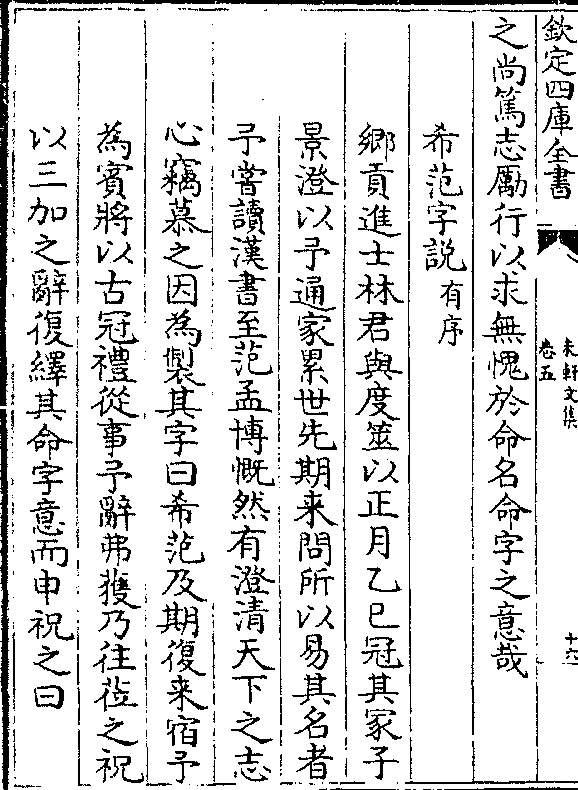 欽定四庫全書
未軒文集
卷五
十六
之尚篤志勵行以求無愧於命名命字之意哉
希范字説有序
鄉貢進士林君與度筮以正月乙巳冠其冢子
景澄以予通家累世先期来問所以易其名者
予嘗讀漢書至范孟博慨然有澄清天下之志
心竊慕之因為製其字曰希范及期復来宿予
為賓將以古冠禮從事予辭弗獲乃往莅之祝
以三加之辭復繹其命字意而申祝之曰